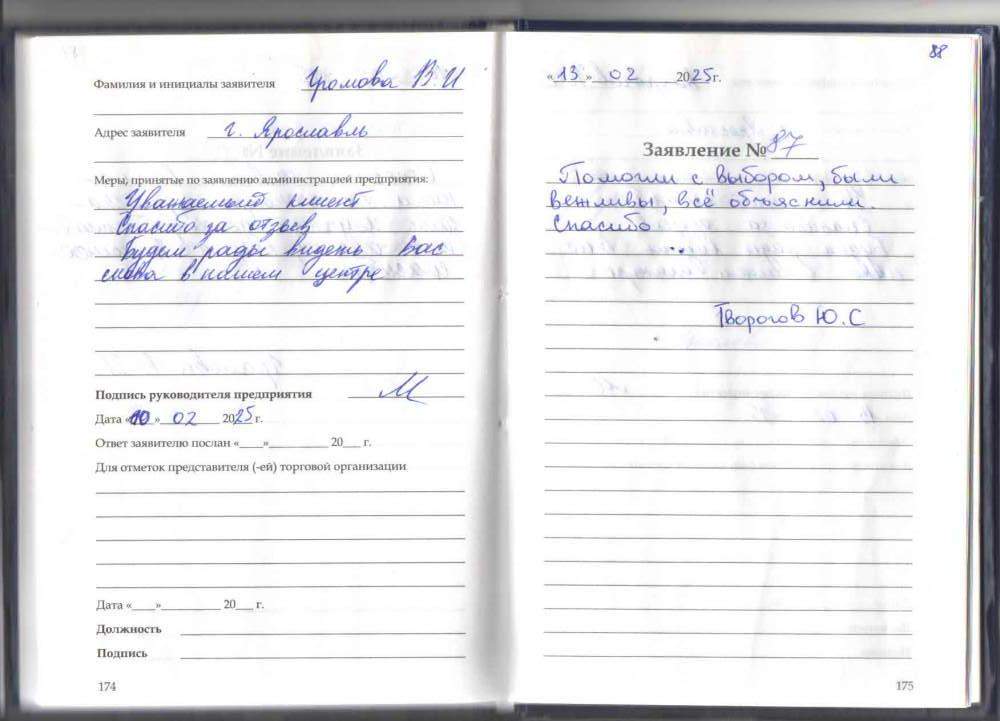 Фамилия и инициалы заявителя Громова В.И
Адрес заявителя г. Ярославль
Меры, принятые по заявлению администрацией предприятия:
Уважаемый клиент
Спасибо за отзыв
Будем рады видеть Вас
снова в нашем центре
Подпись руководителя предприятия
Дата «10» 02 2025 г.
Ответ заявителю послан «____»__________ 20___ г.
Для отметок представителя (-ей) торговой организации
Дата «____»__________ 20___ г.
Должность
Подпись
174
88
«13» 02 2025 г.
Заявление № 87
Помогли с выбором, были
вежливы, всё объяснили.
Спасибо
Творогов Ю.С
175